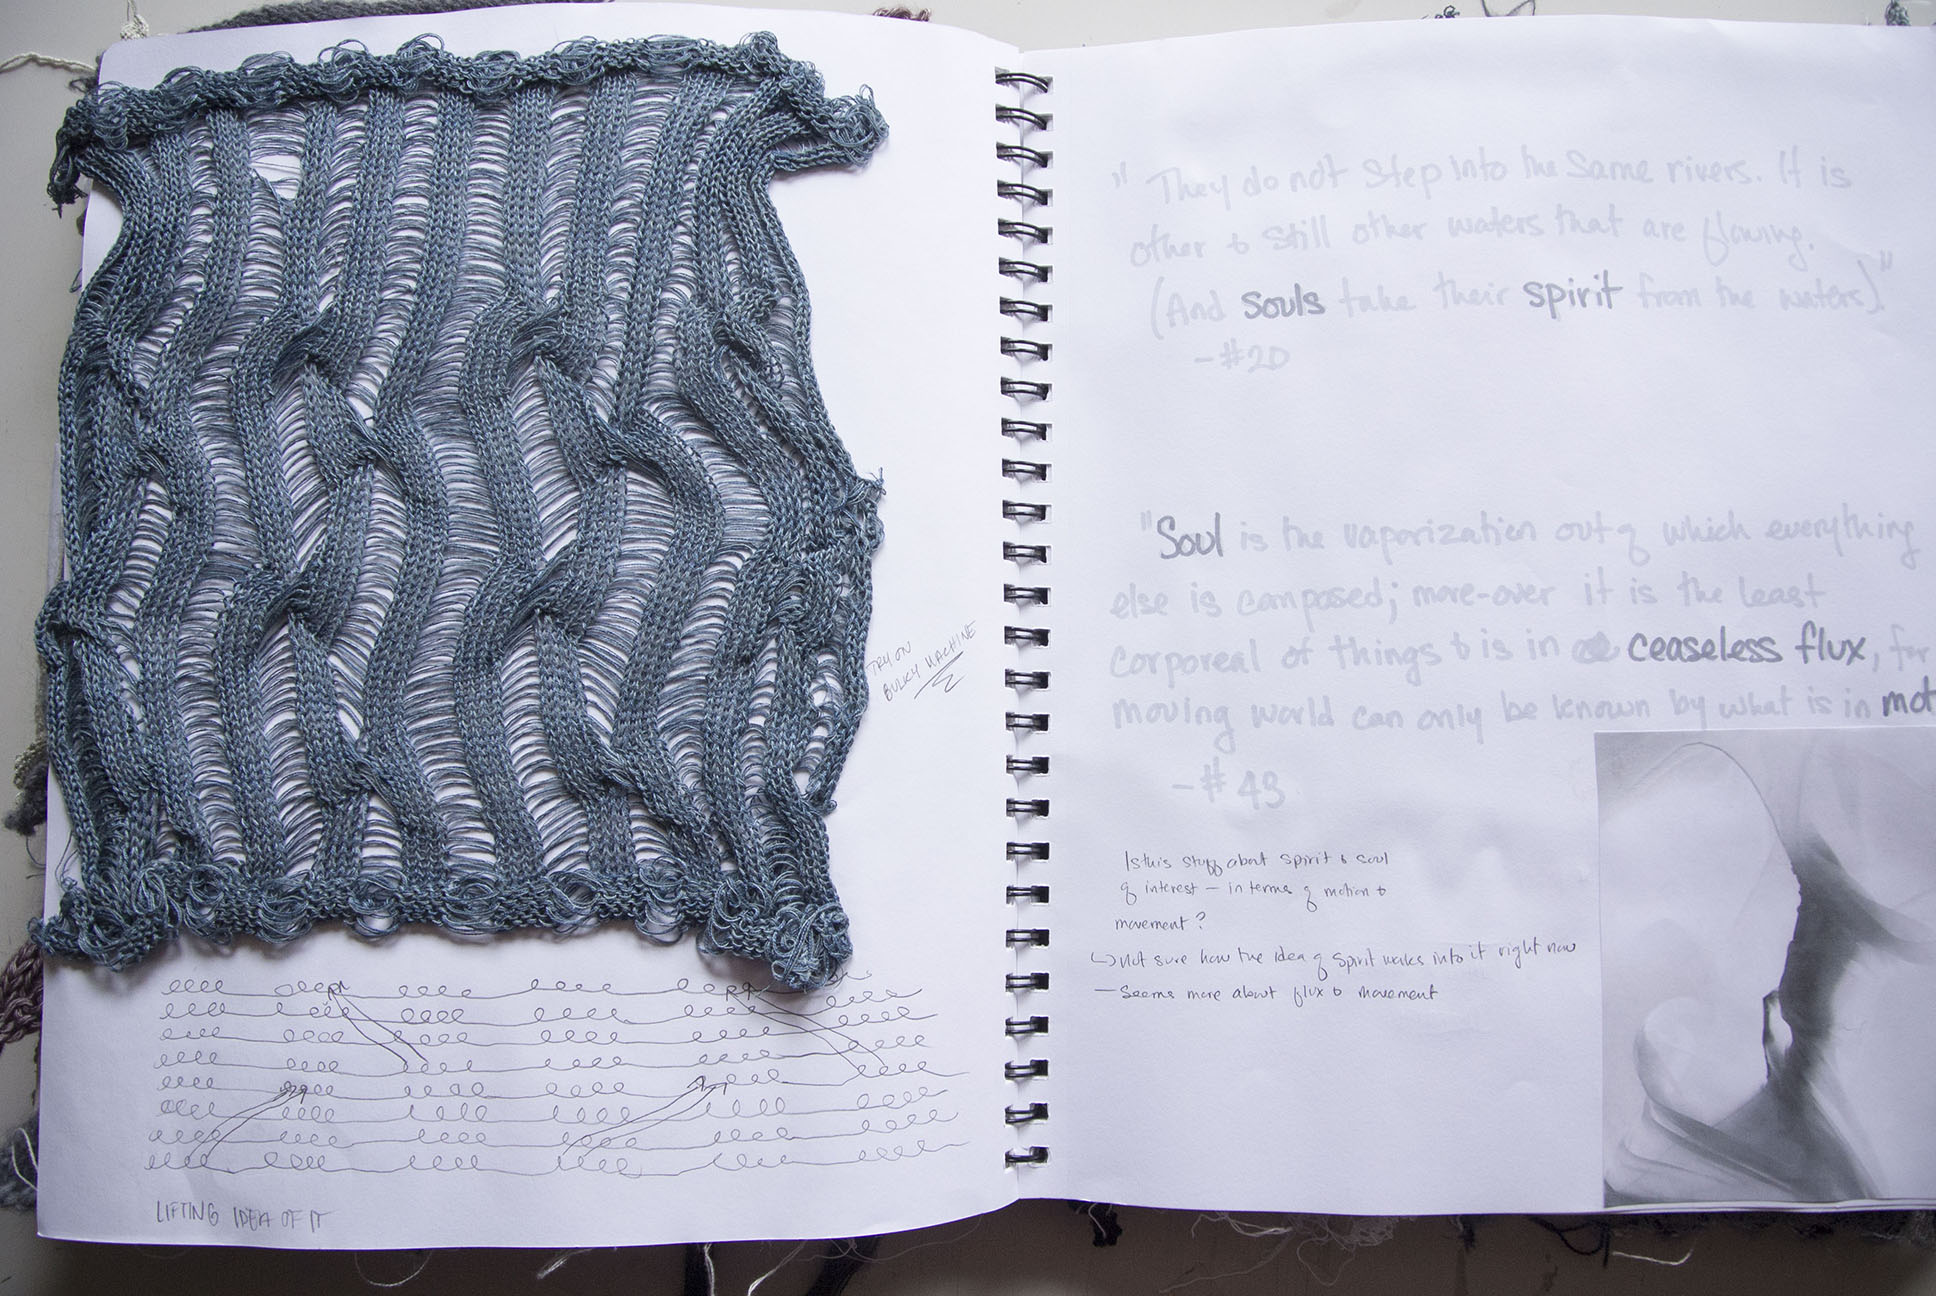 TRY ON
BULKY MACHINE
LIFTING IDEA OF IT
"They do not step into the same rivers. It is
other & still other waters that are flowing.
(And souls take their spirit from the waters)."
- #20
"Soul is the vaporization out of which everything
else is composed; more-over it is the least
corporeal of things & is in ceaseless flux, for
moving world can only be known by what is in mot
- # 43
Is this stuff about spirit & soul
of interest - in terms of motion &
movement?
↳ not sure how the idea of spirit walks into it right now
- seems more about flux & movement